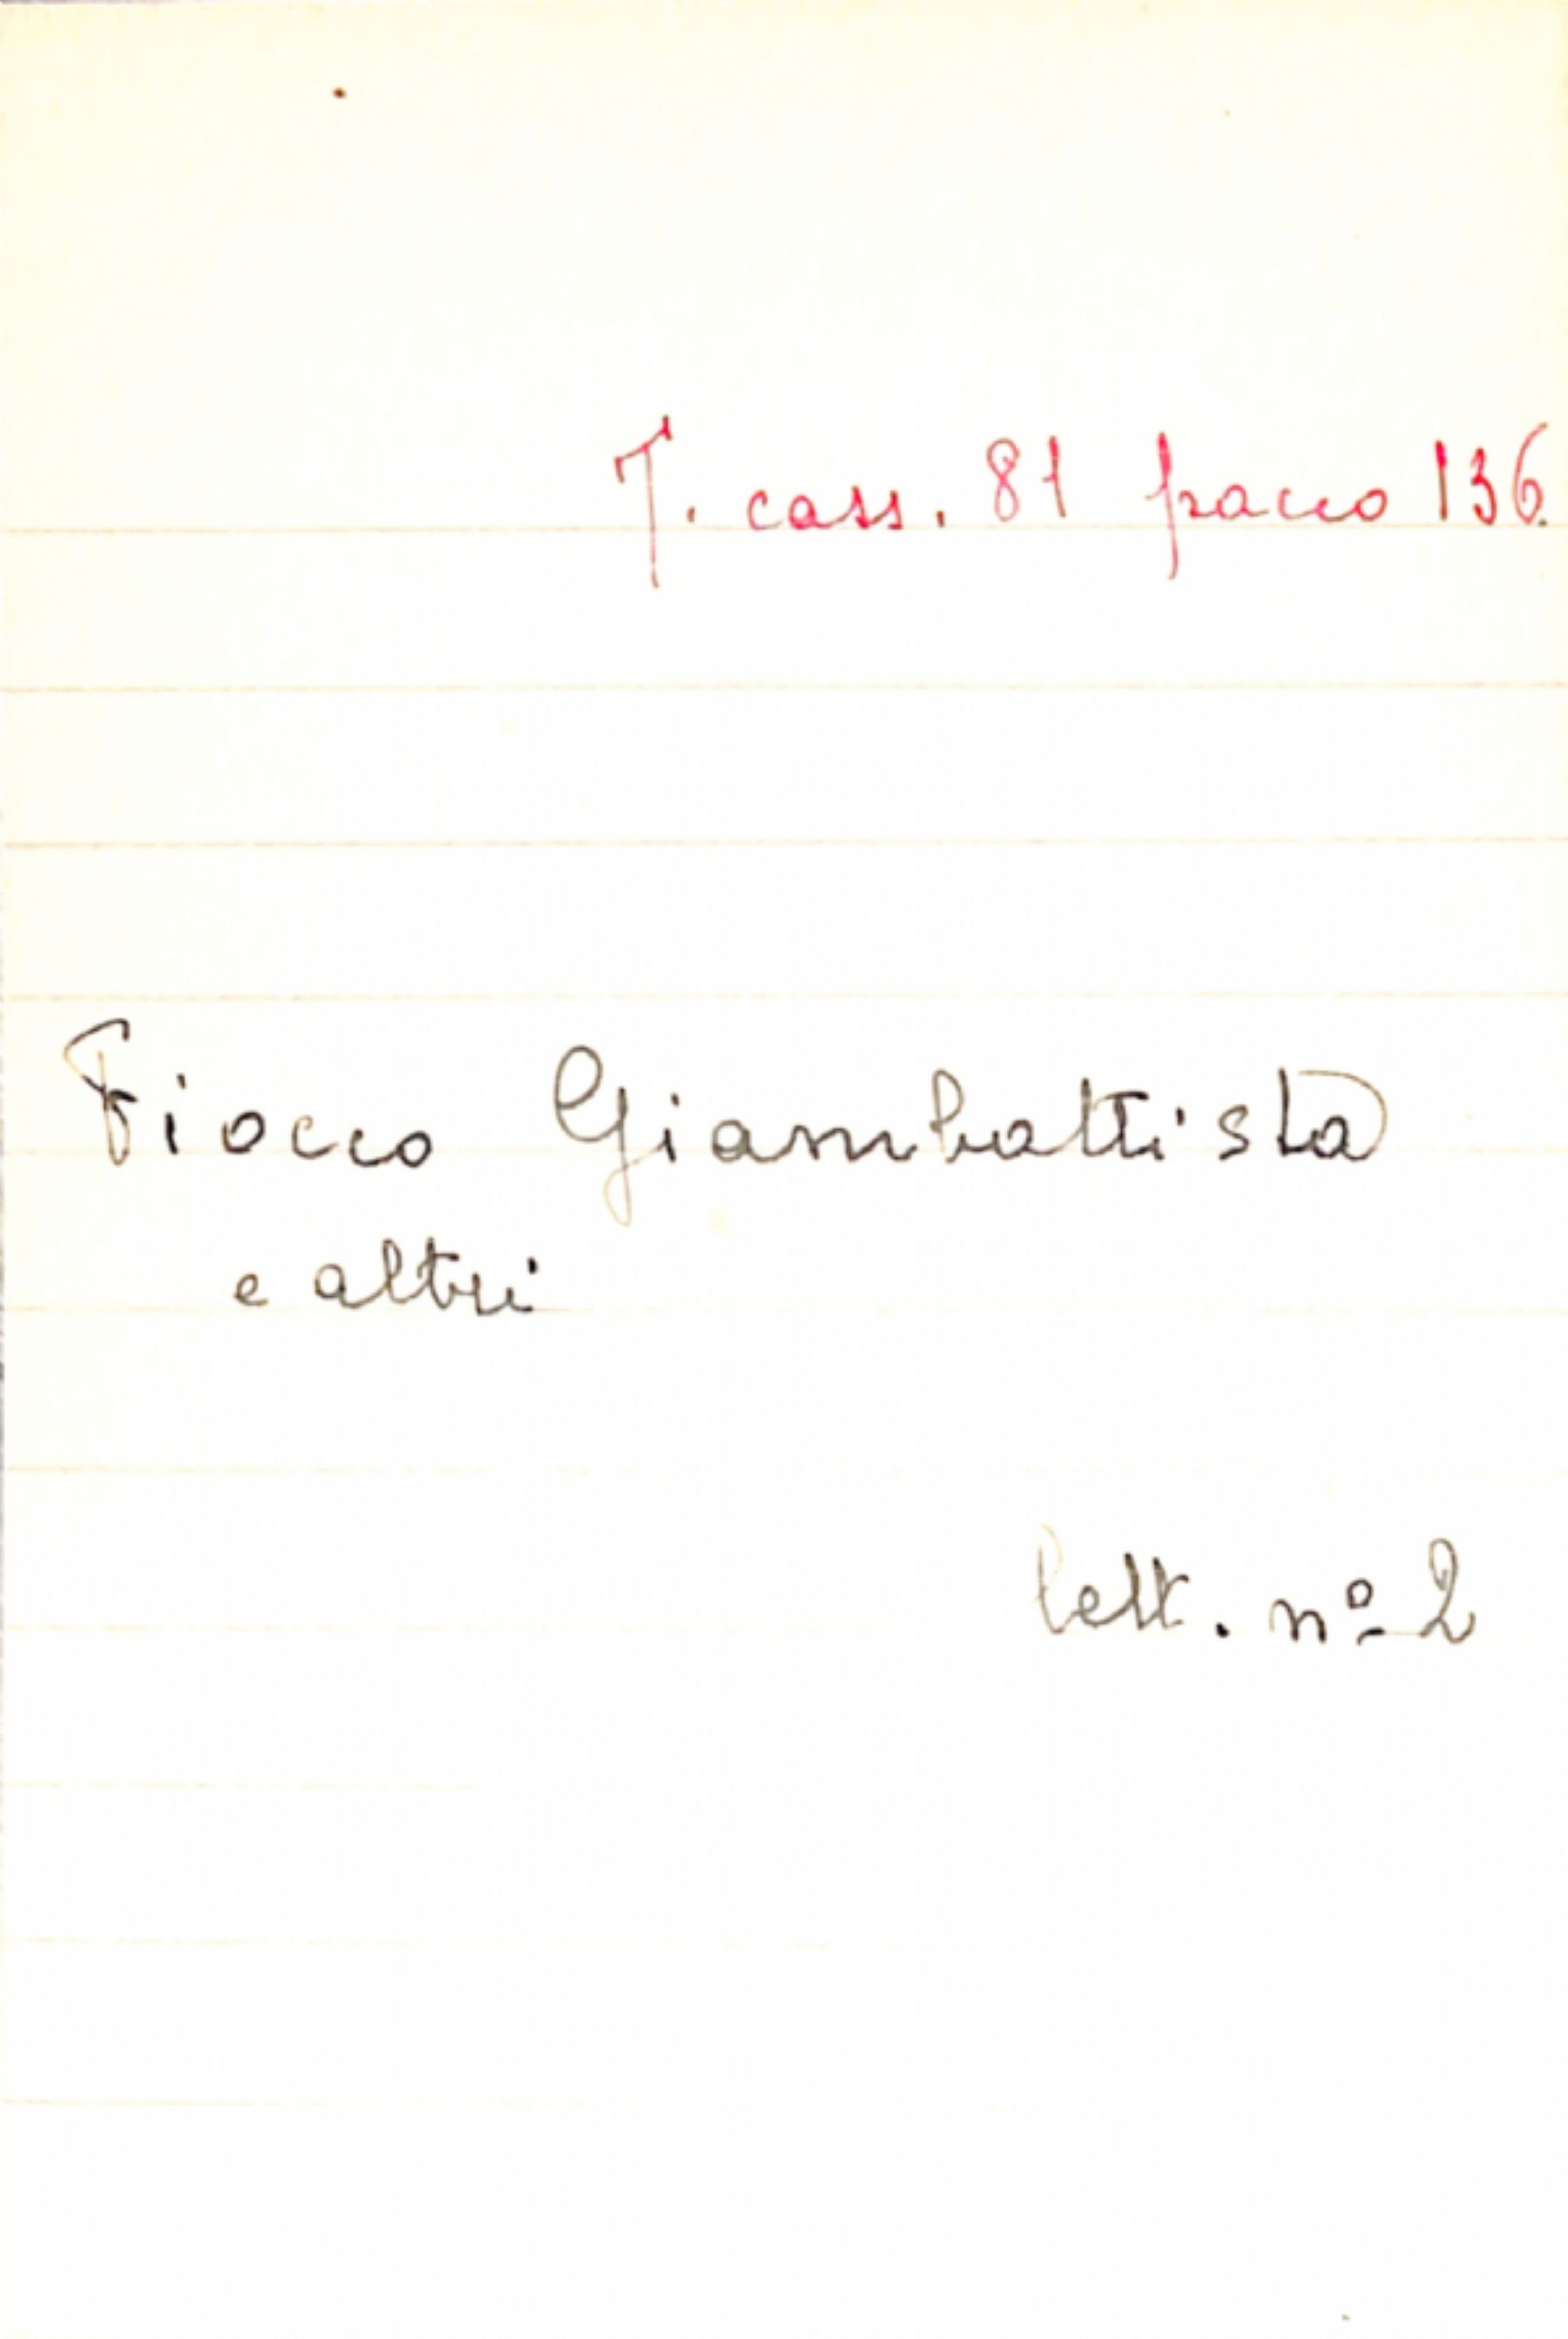 T. cass. 81 pacco 136.
Fiocco Giambattista
e altri
lett. nº 2